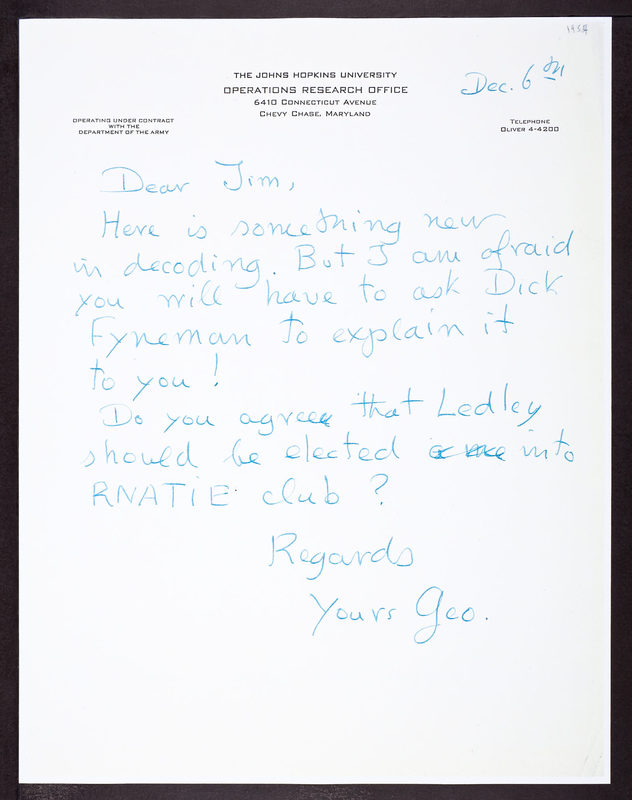 1954
THE JOHNS HOPKINS UNIVERSITY
OPERATIONS RESEARCH OFFICE
6410 CONNECTICUT AVENUE
CHEVY CHASE, MARYLAND
Dec. 6th
OPERATING UNDER CONTRACT
WITH THE
DEPARTMENT OF THE ARMY
TELEPHONE
OLIVER 4-4200
Dear Jim,
Here is something new
in decoding. But I am afraid
you will have to ask Dick
Fyneman to explain it
to you!
Do you agree that Ledley
should be elected into
RNATIE club?
Regards
Yours Geo.